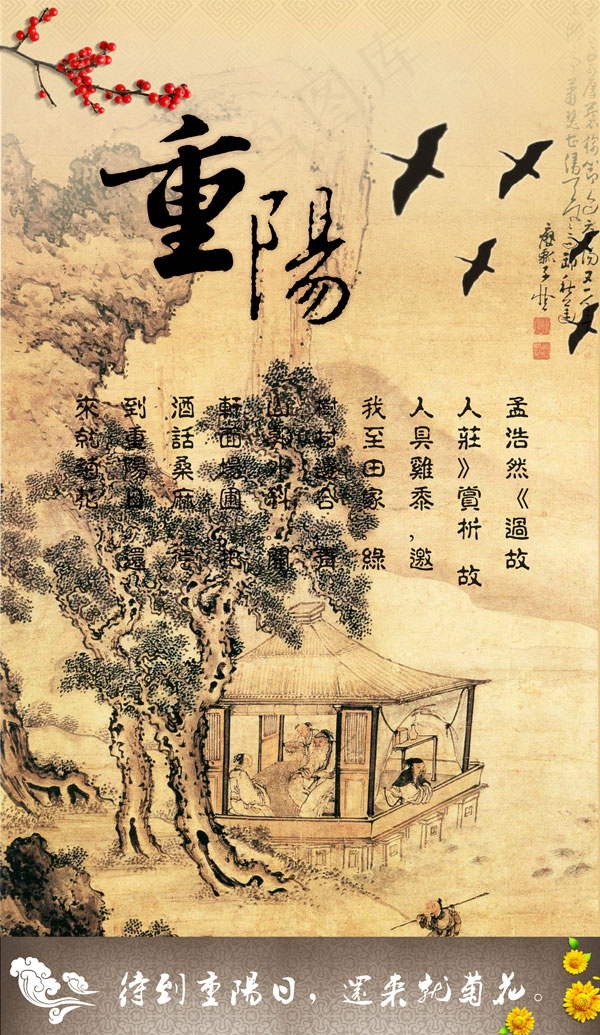 重陽
孟浩然《過故
人莊》賞析 故
人具雞黍,邀
我至田家 綠
樹村邊合 青
山郭外斜 開
軒面場圃 把
酒話桑麻 待
到重陽日 還
來就菊花
待到重陽日，還来就菊花。